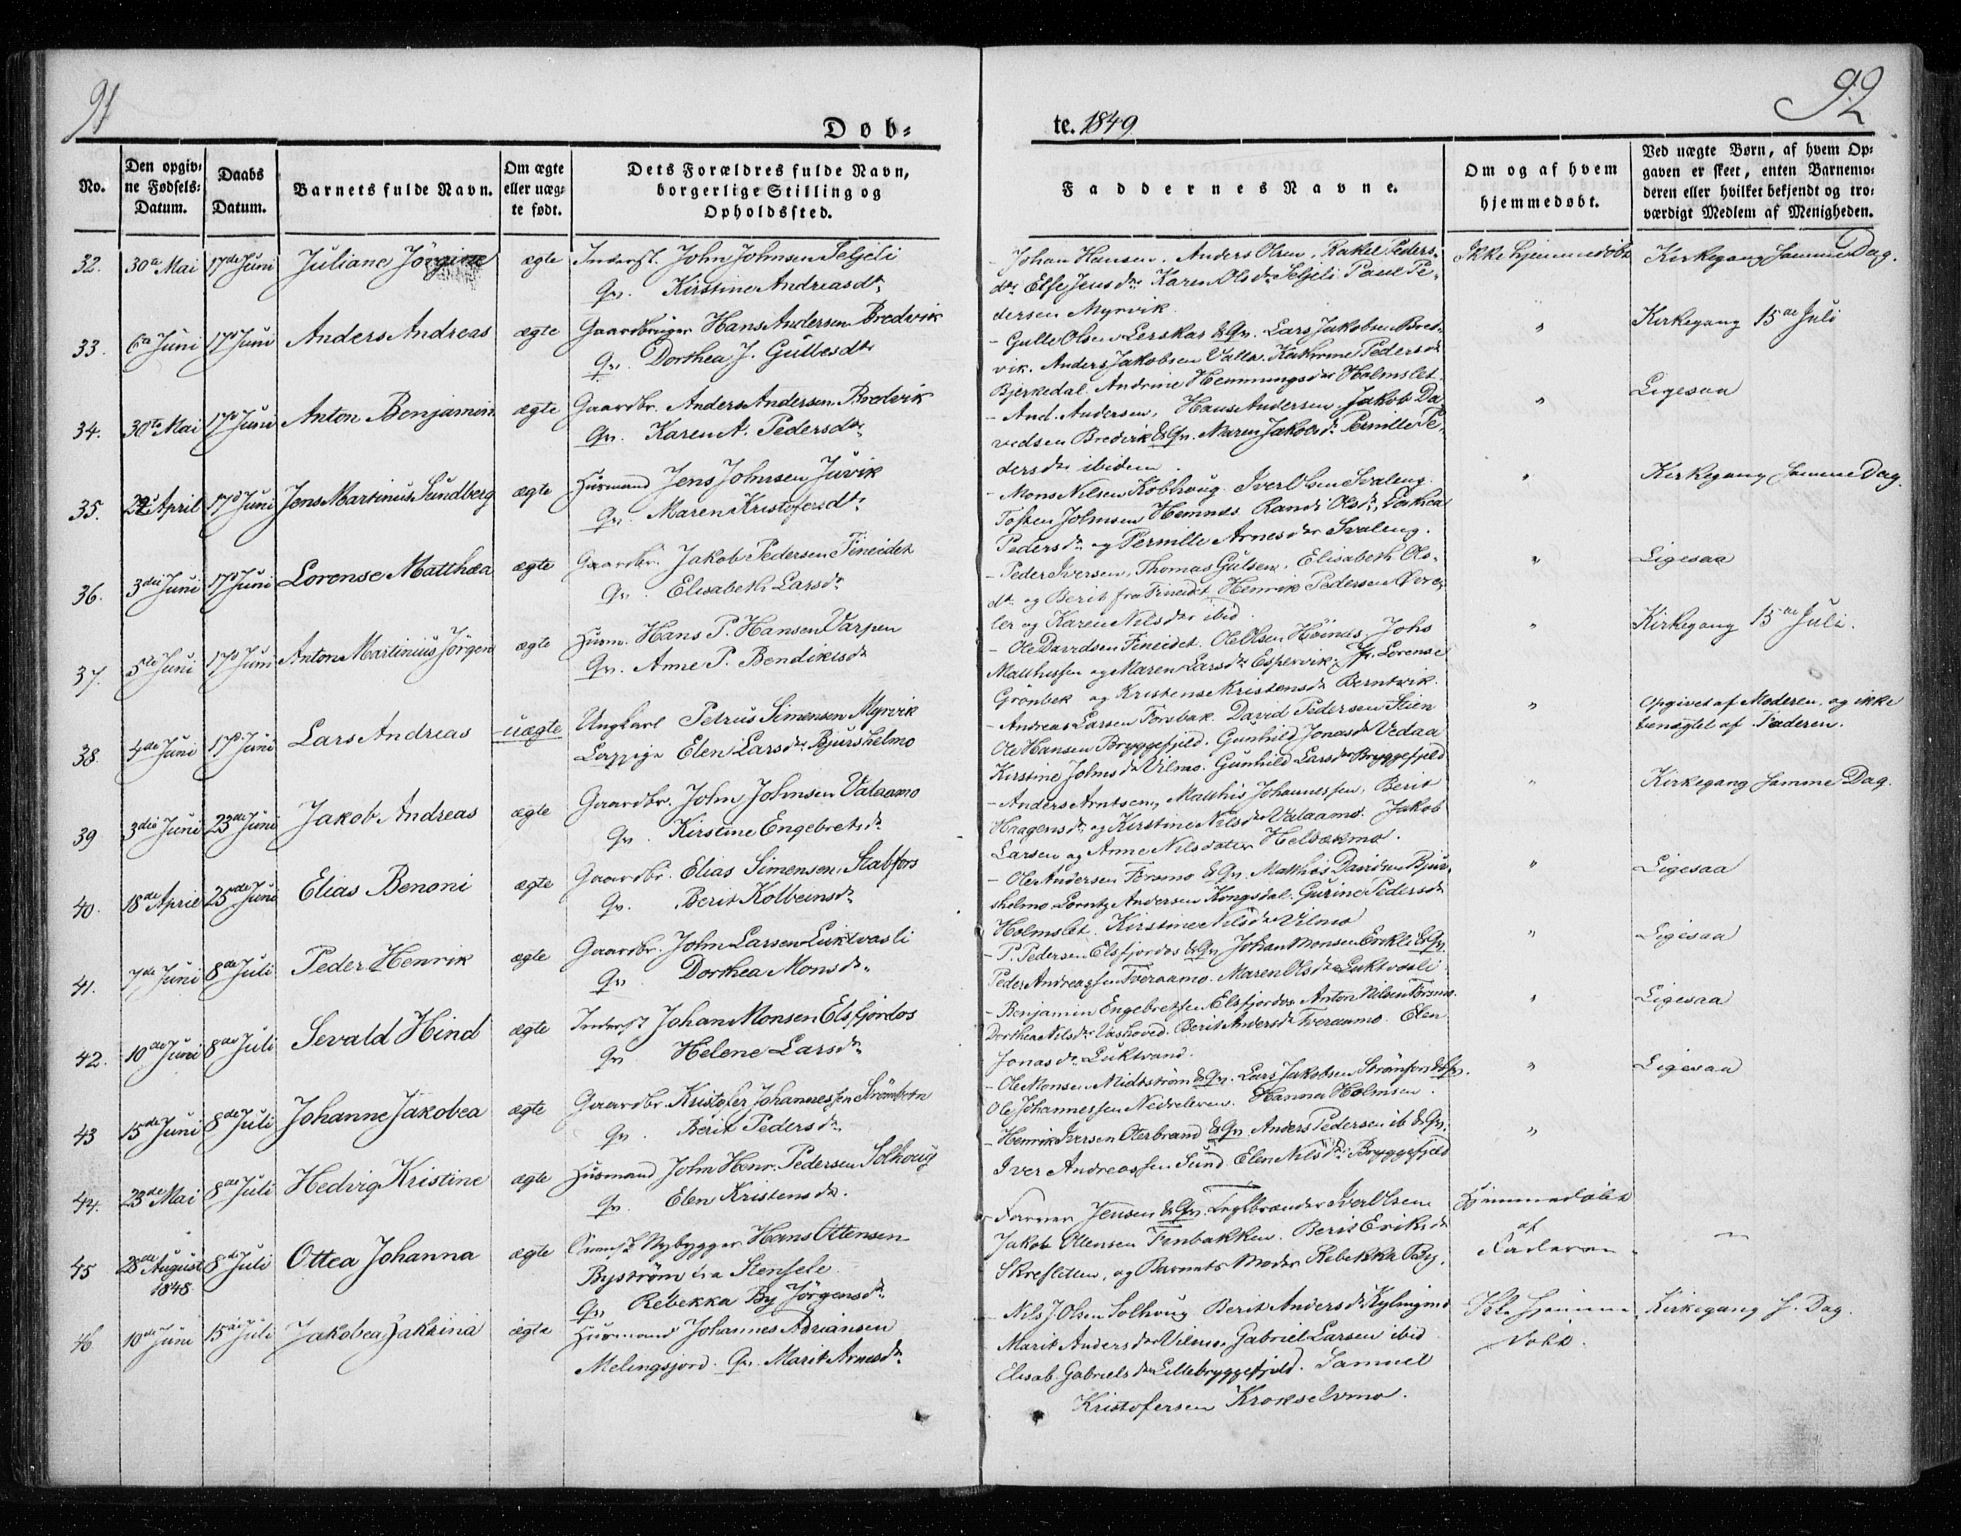 91
92
Døb-
te. 1849
No.
Den opgiv-
ne Fødsels-
Datum.
Daabs
Datum.
Barnets fulde Navn.
Om ægte
eller uæg-
te født.
Dets Forældres fulde Navn,
borgerlige Stilling og
Opholdssted.
Faddernes Navne.
Om og af hvem
hjemmedøbt.
Ved uægte Børn, af hvem Op-
gaven er skeet, enten Barnemo-
deren eller hvilket bekjendt og tro-
værdigt Medlem af Menigheden.
32. 30te Mai 17de Juni Juliane Jörgine ægte Inderst. John Johnsen Seljeli
Qv. Kirstine Andreasdtr
- Johan Hansen. Anders Olsen. Rakel Peders-
dtr Else Jensdtr Karen Olsdtr Seljeli Paul Pe-
dersen Myrvik
Ikke hjemmedøbt Kirkegang samme Dag.
33. 6te Juni 17d Juni Anders Andreas ægte Gaardbruger Hans Andersen Bredvik
Qv. Dorthea J. Gullesdtr
- Gulle Olsen Lerskar & Qv. Lars Jakobsen Bred-
vik. Anders Jakobsen Valla. Kathrine Pedersdr
Bjerkedal. Andrine Hemmingsdtr Holmslet
" Kirkegang 15de Juli
34. 30te Mai 17d Juni Anton Benjamin ægte Gaardbr. Anders Andersen Bredvik
Qv. Karen A. Pedersdtr
- And. Andersen, Hans Andersen, Jakob Da-
vidsen Bredvik & Qv. Maren Jakobsdr Pernille Pe-
dersdtr ibidem.
" Ligesaa
35. 22 April 17d Juni Jens Martinus Sundberg ægte Husmand Jens Johnsen Juvik
Qv. Maren Kristofersdtr
- Mons Nilsen Kobhoug. Iver Olsen Svaleng.
Tosten Johnsen Hemnes Randi Olsdr, Dorthea
Pedersdr og Pernille Arnesdtr Svaleng.
" Kirkegang samme Dag.
36. 3die Juni 17d Juni Lorense Matthæa ægte Gaardbr. Jakob Pedersen Fineidet
Qv. Elisabeth Larsdr
- Peder Iversen, Thomas Gulsen, Elisabeth Ols-
dtr og Berit fra Fineidet. Henrik Pedersen Øvre-
ler og Karen Nilsdtr ibid.
" Ligesaa
37. 5te Juni 17d Juni Anton Martinius Jörgen ægte Husm. Hans P. Hansen Varpen
Qv. Anne P. Bendiktsdr
- Ole Davidsen Fineidet. Ole Olsen Høinds, Johs
Matthissen og Maren Larsdtr Espervik, Jfr. Lorense
Grönbek og Kristense Kristensdr Berntvik.
" Kirkegang 15de Juli.
38. 4de Juni 17d Juni Lars Andreas uægte Ungkarl Petrus Simensen Myrvik
Lappige Elen Larsdtr Bjurshelmo
- Andreas Larsen Forsbak. David Pedersen Stien
Ole Hansen Bryggefjeld. Gunhild Jonasdr Vedaa
Kirstine Johnsdr Vilmo. Gunhild Larsdtr Bryggefjeld
" Opgivet af Moderen, og ikke
benægtet af Faderen.
39 3die Juni 23de Juni Jakob Andreas ægte Gaardbr. John Johnsen Valaamo
Qv. Kirstine Engebretsdr
- Anders Arntsen, Matthis Johannessen, Berit
Haagensdr og Kirstine Nilsdr Valaamo. Jakob
Larsen og Anne Nilsdatter Helsækmo.
" Kirkegang samme Dag.
40. 18de April 25de Juni Elias Benoni ægte Gaardbr. Elias Simensen Stabfors
Qv. Berit Kolbeinsdr
- Ole Andersen Forsmo & Qv. Matthis Davidsen Bjurs-
helmo Lorntz Andersen Kongsdal. Gurine Pedersdr
Holmslet. Kirstine Nilsdtr Vilmo
" Ligesaa
41. 7de Juni 8de Juli Peder Henrik ægte Gaardbr. John Larsen Luktvasli
Qv. Dorthea Monsdr
- P. Pedersen Elsfjordos & Qv. Johan Monsen & Qv.
Peder Andreassen Tveraamo. Maren Olsdr Luktvasli
" Ligesaa
42. 10de Juni 8de Juli Sevald Hind ægte Inderst Johan Monsen Elsfjordos
Qv. Helene Larsdr
- Benjamin Engebretsen Elsfjordos Anton Nilsen Forsmo.
Dorthea Nilsdr Vashoved. Berit Andersdr Tveraamo. Elen
Jonasdr Luktvand.
" Ligesaa
43 15de Juni 8de Juli Johanne Jakobea ægte Gaardbr. Kristofer Johannessen Strömboten
Qv. Berit Pedersdr
- Ole Monsen Midtström & Qv. Lars Jakobsen Strömfors & Qv.
Ole Johannessen Nedreleren. Hanna Holmsen.
" Ligesaa
44. 23de Mai 8de Juli Hedvig Kristine ægte Husmand John Henr. Pedersen Solhoug
Qv. Elen Kristensdr.
- Henrik Iversen Oterbrand & Qv. Anders Pedersen ib & Qv.
Iver Andreassen Sund Elen Nilsdr Bryggefjeld
"
45 28de August 8d Juli Ottea Johanna ægte Svensk Nybygger Hans Ottensen
1848
Byström fra Stensele.
Qv Rebekka By Jörgensdr
Farver Jensen & Qv. Teglbrænder Iver Olsen
Jakob Ottensen Tenbakken. Berit Eriksdr
Skresletten, og Barnets Moder Rebekka By.
Hjemmedøbt
af
Faderen
46 10de Juni 15de Juli Jakobea Zakrina ægte Husmand Johannes Adriansen
Melingsjord. Qv. Marit Arnesdr
- Nils J Olsen Solhoug Berit Andersdr Kylingmo
Marit Andersdtr Vilmo Gabriel Larsen ibid
Elisab. Gabrielsdtr Lillebryggefjeld. Samuel
Kristofersen Krokselvmo.
Ikke hjemme-
døbt.
Kirkegang s. Dag